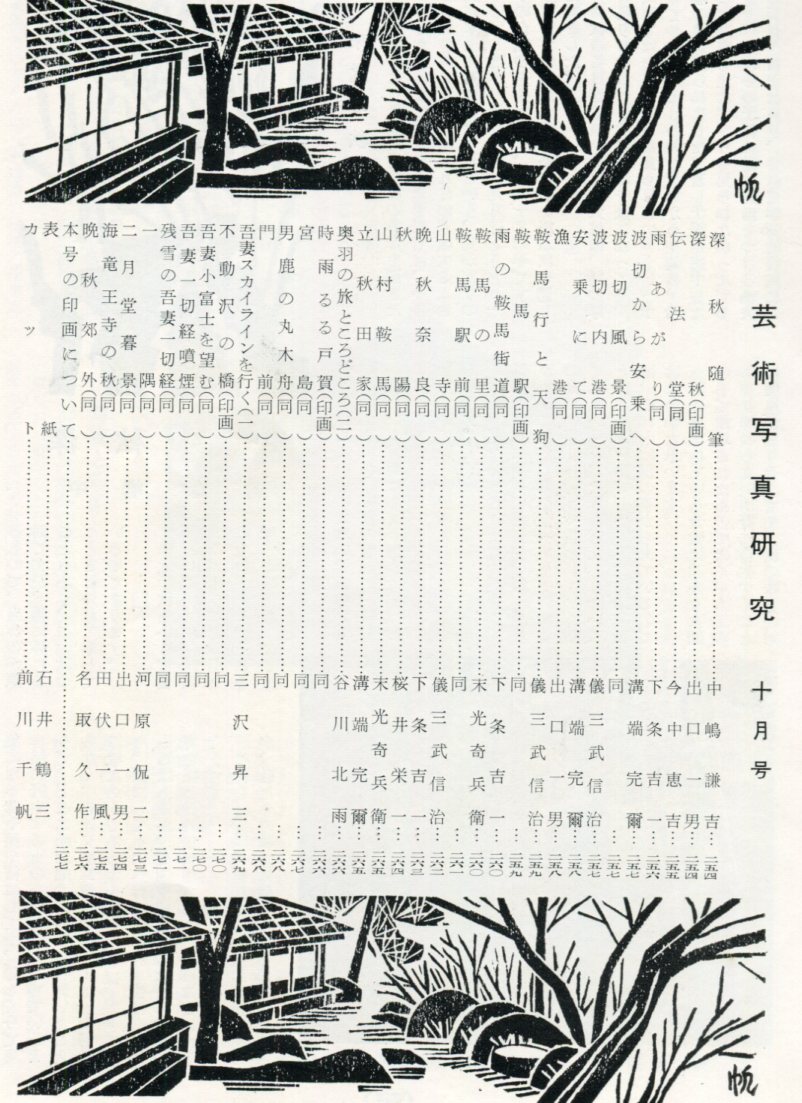 芸術写真研究 十月号
深秋随筆……中嶋謙吉…二五四
深秋(印画)……出口一男…二五四
伝法堂(同)……今中恵吉…二五五
雨あがり(同)……下条吉一…二五六
波切から安乗へ……溝端完爾…二五七
波切風景(印画)……同…二五七
波切内港(同)……儀三武信治…二五七
安乗にて(同)……溝端完爾…二五八
漁港(同)……出口一男…二五八
鞍馬行と天狗……儀三武信治…二五九
鞍馬駅(印画)……同…二五九
雨の鞍馬街道(同)……下条吉一…二六〇
鞍馬の里(同)……末光奇兵衛…二六〇
鞍馬駅前(同)……同…二六一
山寺(同)……儀三武信治…二六二
晩秋奈良(同)……下条吉一…二六三
秋陽(同)……桜井栄一…二六四
山村鞍馬(同)……末光奇兵衛…二六五
立秋田家(同)……溝端完爾…二六五
奥羽の旅ところどころ(二)……谷川北雨…二六六
時雨るる戸賀(印画)……同…二六六
宮島(同)……同…二六七
男鹿の丸木舟(同)……同…二六八
門前(同)……同…二六八
吾妻スカイラインを行く(一)……三沢昇三…二六九
不動沢の橋(印画)……同…二七〇
吾妻小富士を望む(同)……同…二七〇
吾妻一切経噴煙(同)……同…二七一
残雪の吾妻一切経(同)……同…二七一
一隅(同)……河原侃二…二七三
二月堂暮景(同)……出口一男…二七四
海竜王寺の秋(同)……田伏一風…二七五
晩秋郊外(同)……名取久作…二七六
本号の印画について……二七七
表紙……石井鶴三
カット……前川千帆
帆
帆